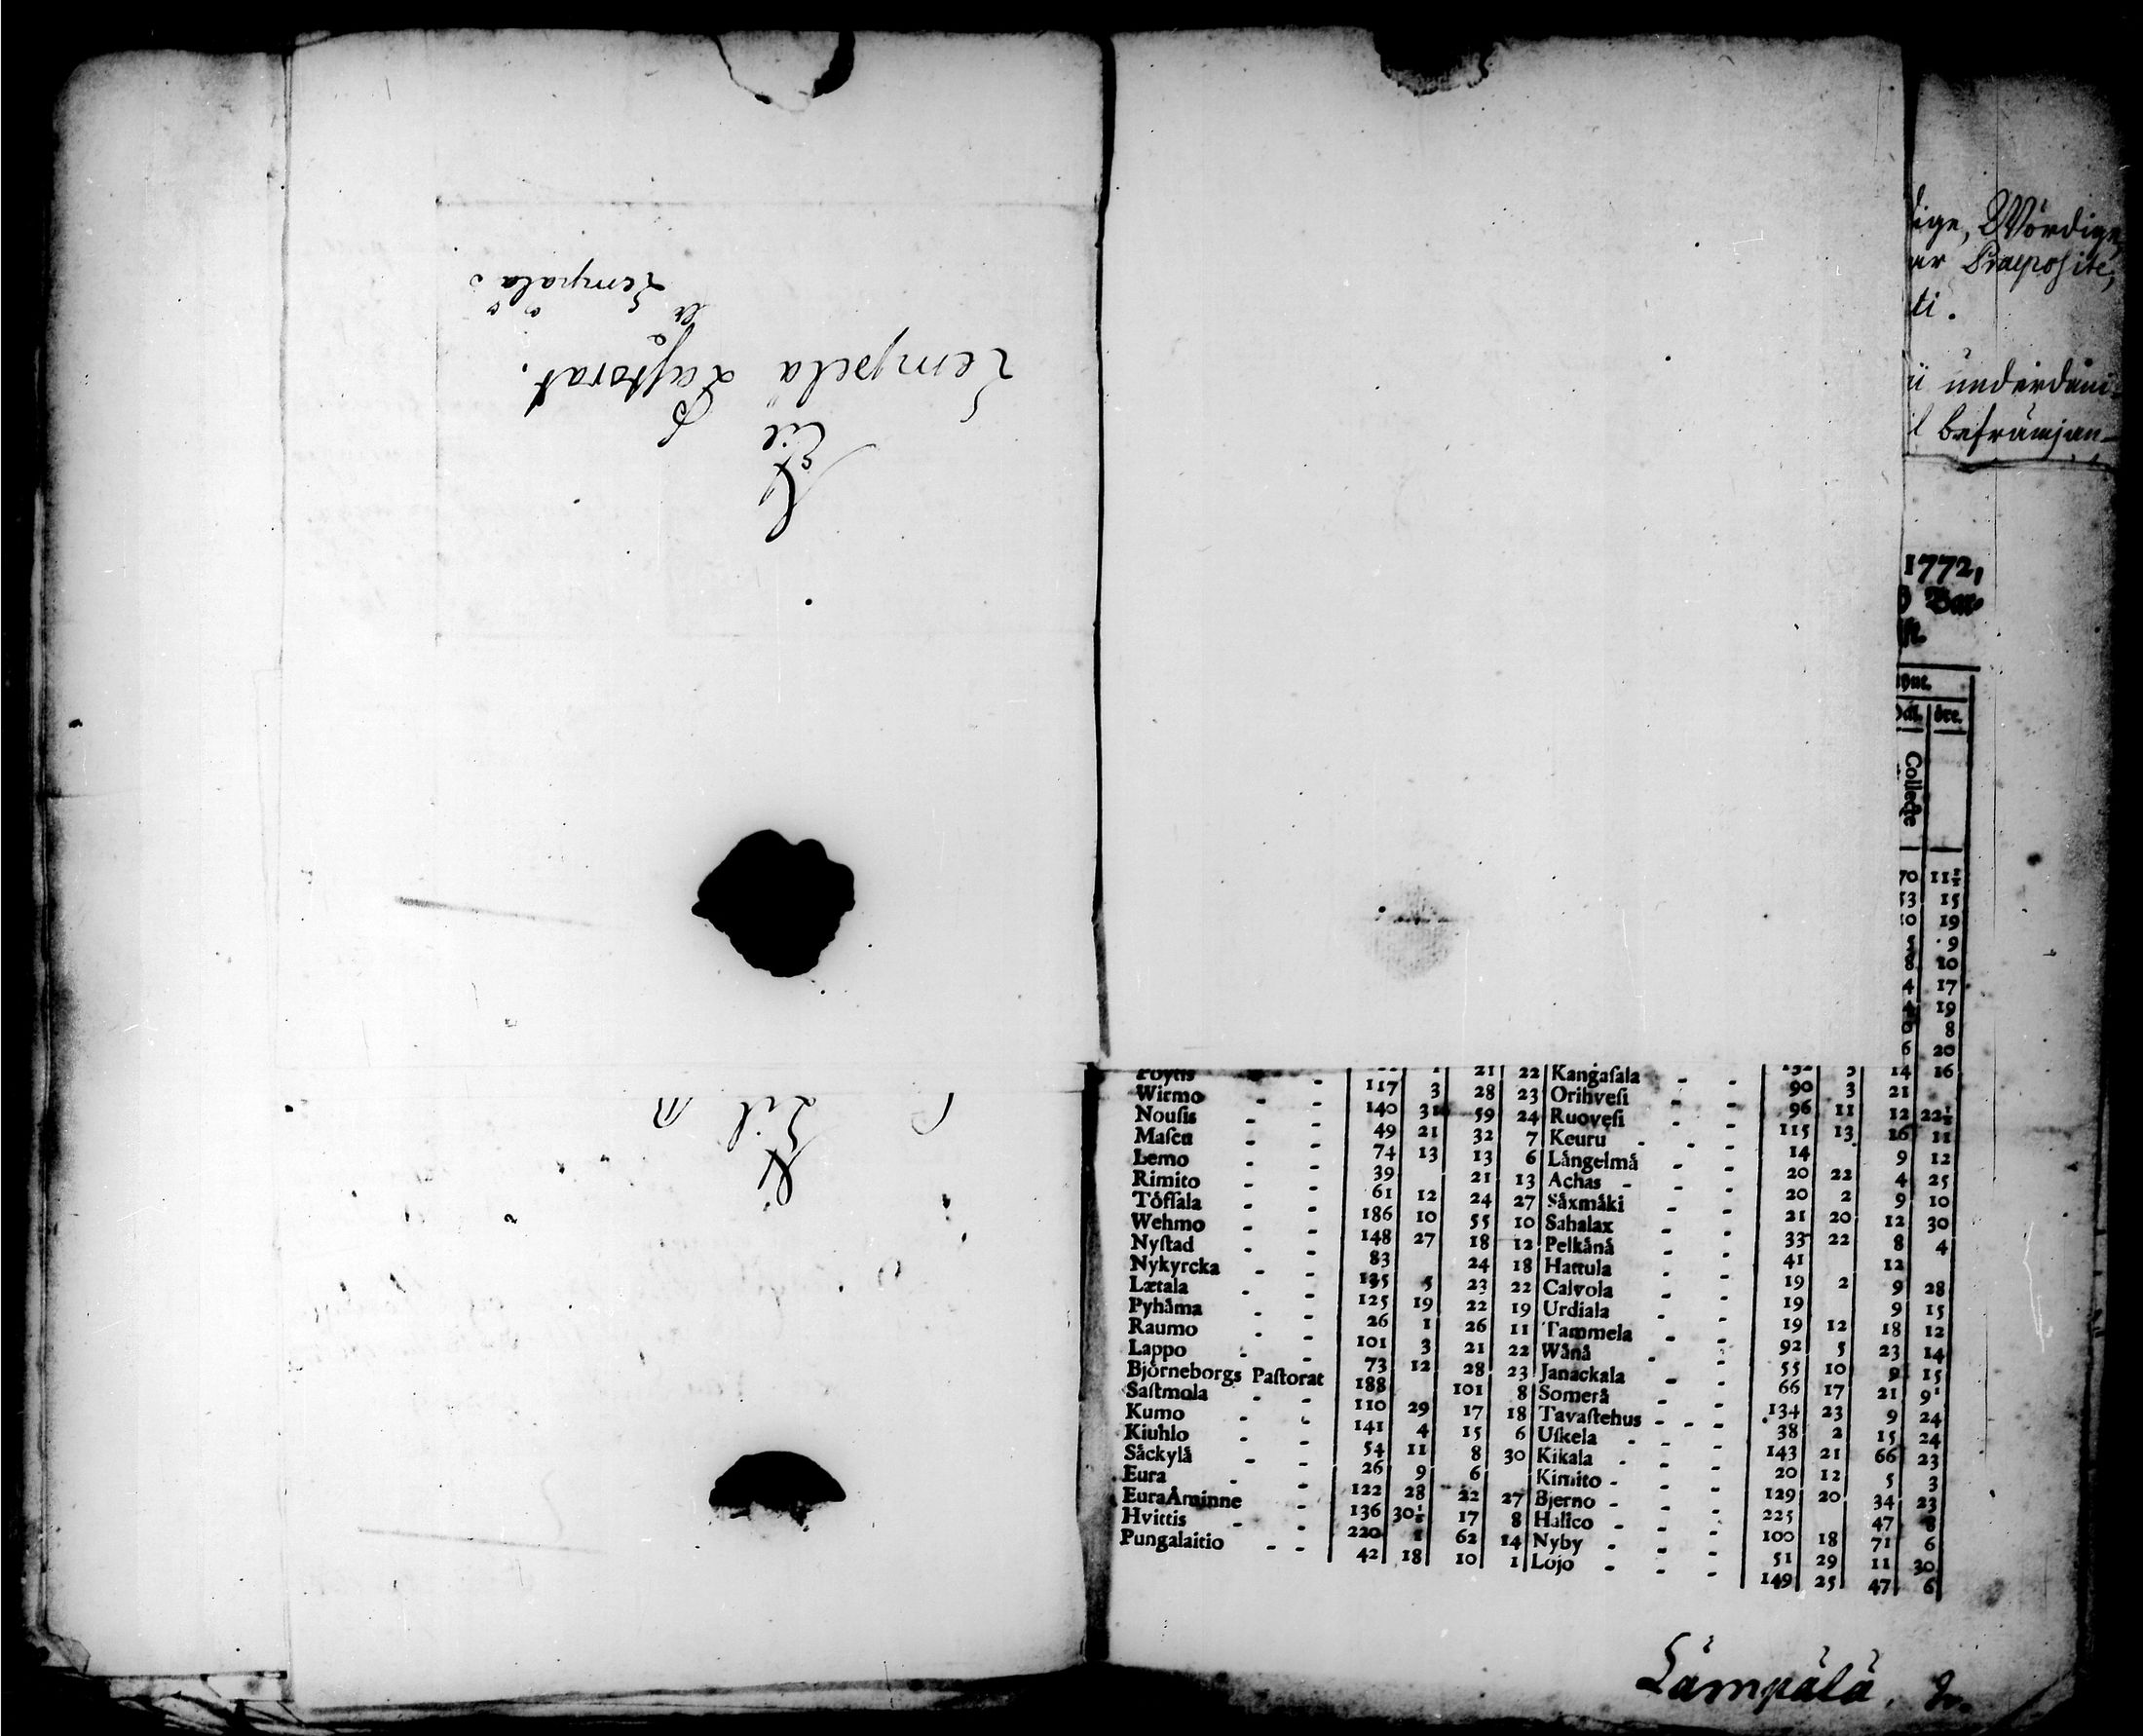 Lempälä
Lempela Pastorat.
Til
Til
ige, Wördige
ar Præposite,
ti.
underdåni
befrämjan-
1772,
Bar-
öre.
Collecte
70 11½
53 15
10 19
5 9
8 10
4 17
4 19
0 8
6 20
132 3 14 16
21 22 Kangaſala - - 90 3 21
Pöytis - 117 3 28 23 Orihveſi - - 96 11 12 22½
Wirmo - - 140 31 59 24 Ruoveſi - - 115 13 16 11
Nouſis - - 49 21 32 7 Keuru - - - 14 9 12
Maſcu - - 74 13 13 6 Långelmå - - 20 22 4 25
Lemo - - 39 21 13 Achas - - 20 2 9 10
Rimito - - 61 12 24 27 Såxmåki - - 21 20 12 30
Töfſala - - 186 10 55 10 Sahalax - - 33 22 8 4
Wehmo - - 148 27 18 12 Pelkånå - - 41 12
Nyſtad - - 83 24 18 Hattula - - 19 2 9 28
Nykyrcka - - 135 5 23 22 Calvola - - 19 9 15
Lætala - - 125 19 22 19 Urdiala - - 19 12 18 12
Pyhåma - - 26 1 26 11 Tammela - - 92 5 23 14
Raumo - - 101 3 21 22 Wånå - - 55 10 9 15
Lappo - - 73 12 28 23 Janackala - - 66 17 21 9
Björneborgs Paſtorat 188 101 8 Somerå - - 134 23 9 24
Saſtmola - - 110 29 17 18 Tavaſtehus - - - 38 2 15 24
Kumo - - 141 4 15 6 Uſkela - - - 143 21 66 23
Kiuhlo - - 54 11 8 30 Kikala - - - 20 12 5 3
Såckylå - - 26 9 6 Kimito - - - 129 20 34 23
Eura - - 122 28 22 27 Bjerno - - - 225 47 8
EuraÅminne - 136 30½ 17 8 Halico - - - 100 18 71 6
Hvittis - - 220 1 62 14 Nyby - - - 51 29 11 30
Pungalaitio - - 42 18 10 1 Lojo - - - 149 25 47 6
Lämpälä.